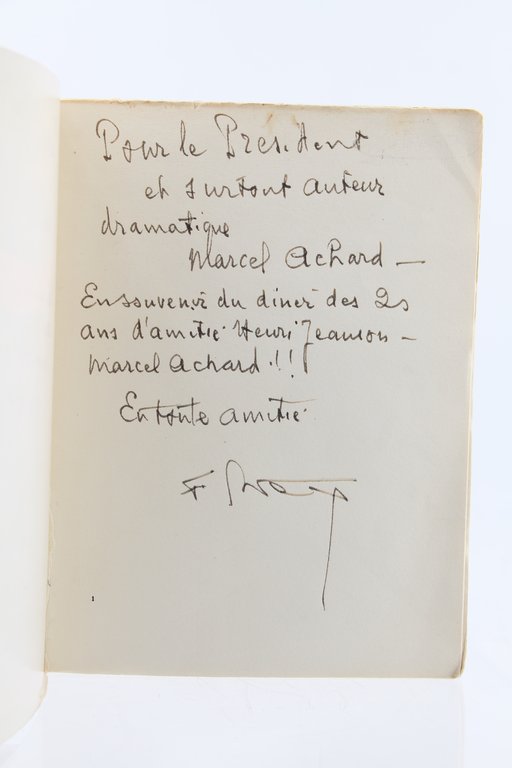 Pour le President
et surtout auteur
dramatique
Marcel Achard —
En souvenir du diner des 25
ans d'amitié Henri Jeanson —
Marcel Achard !!
En toute amitié
F
1